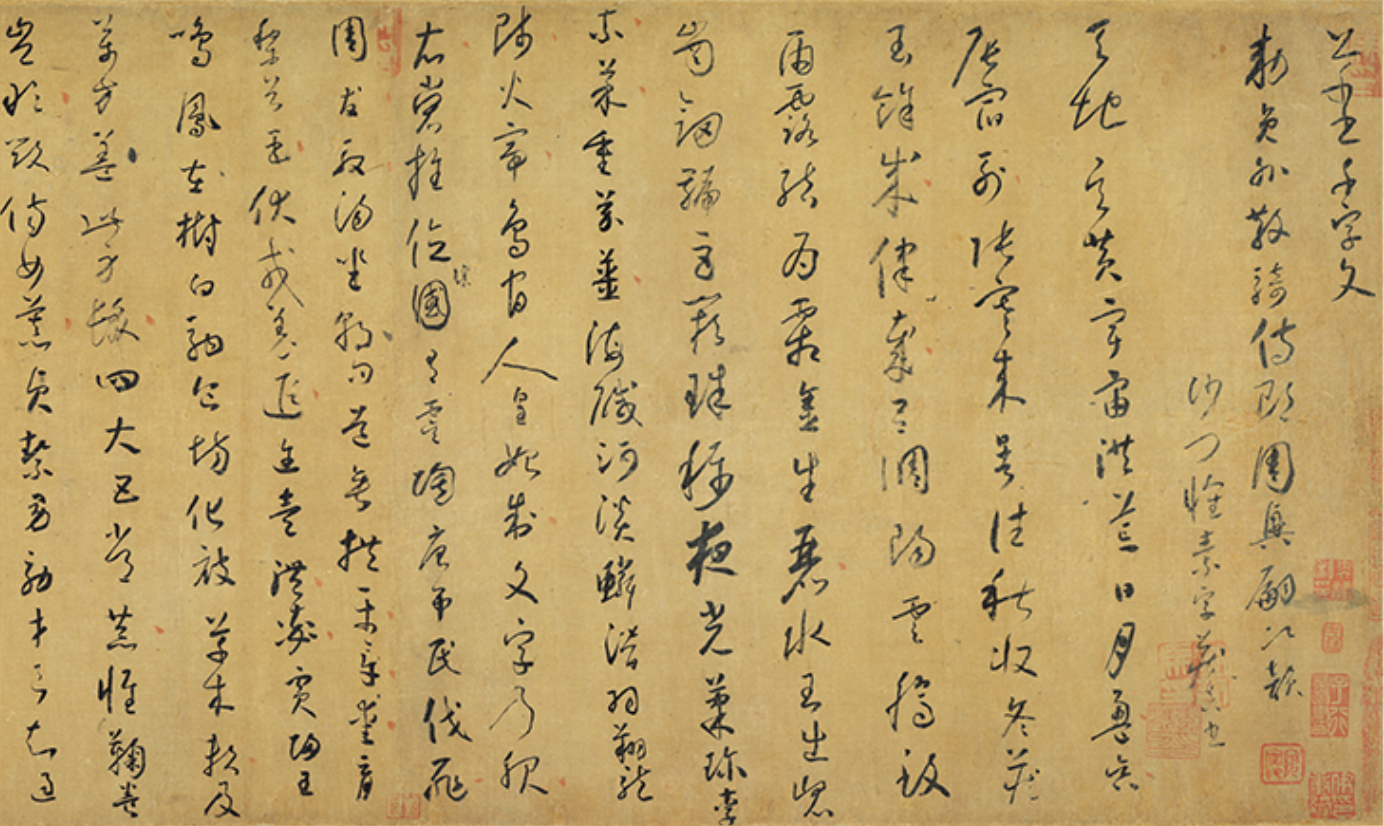 草書千字文
敕員外散騎侍郎周興嗣次韻
沙門懷素字藏真也
天地玄黃宇宙洪荒日月盈昃
辰宿列張寒來暑往秋收冬藏
閏餘成歲律呂調陽雲騰致
雨露結為霜金生麗水玉出崑
崗劍號巨闕珠稱夜光菓珍李
柰菜重芥薑海鹹河淡鱗潛羽翔龍
師火帝鳥官人皇始制文字乃服
衣裳推位讓國有虞陶唐弔民伐罪
周發殷湯坐朝問道垂拱平章愛育
黎首臣伏戎羌遐邇壹體率賓歸王
鳴鳳在樹白駒食場化被草木賴及
萬方蓋此身髮四大五常恭惟鞠養
豈敢毀傷女慕貞絜男效才良知過